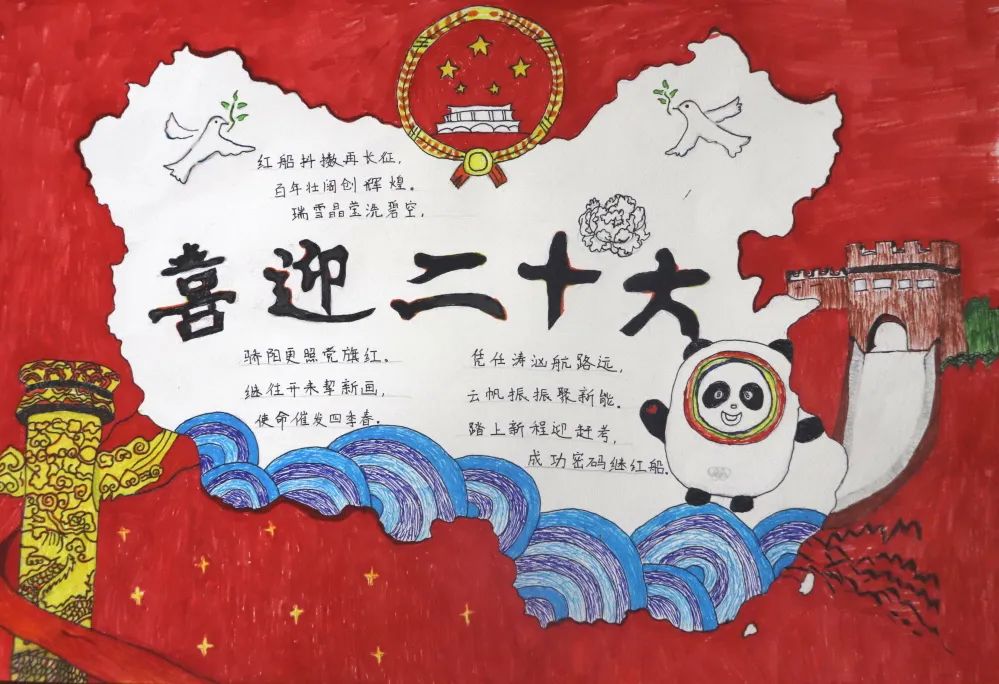 红船抖擞再长征，
百年壮阔创辉煌。
瑞雪晶莹洗碧空，
喜迎二十大
骄阳更照党旗红。
继往开来挈新画，
使命催发四季春。
凭任涛汹航路远，
云帆振振聚新能。
踏上新程迎赶考，
成功密码继红船。